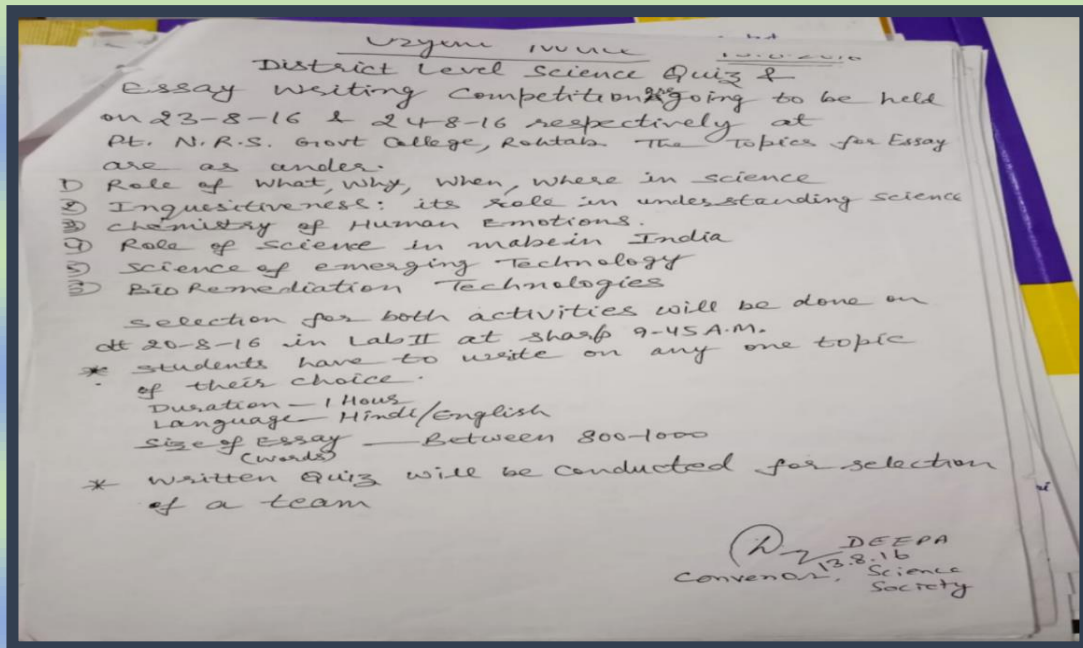 Urgent Notice
District Level Science Quiz &
Essay Writing Competition is going to be held
on 23-8-16 & 24-8-16 respectively at
Pt. N.R.S. Govt College, Rohtak The Topics for Essay
are as under.
1) Role of What, Why, When, Where in science
2) Inquesitiveness: its role in understanding science
3) Chemistry of Human Emotions.
4) Role of Science in makein India
5) Science of emerging Technology
Bio Remediation Technologies
Selection for both activities will be done on
dt 20-8-16 in Lab II at sharp 9-45 A.M.
* Students have to write on any one topic
of their choice.
Duration - 1 Hour
Language - Hindi/English
Size of Essay — Between 800-1000
(Words)
* Written Quiz will be conducted for selection
of a team
DEEPA
13.8.16
Convenor, Science
Society